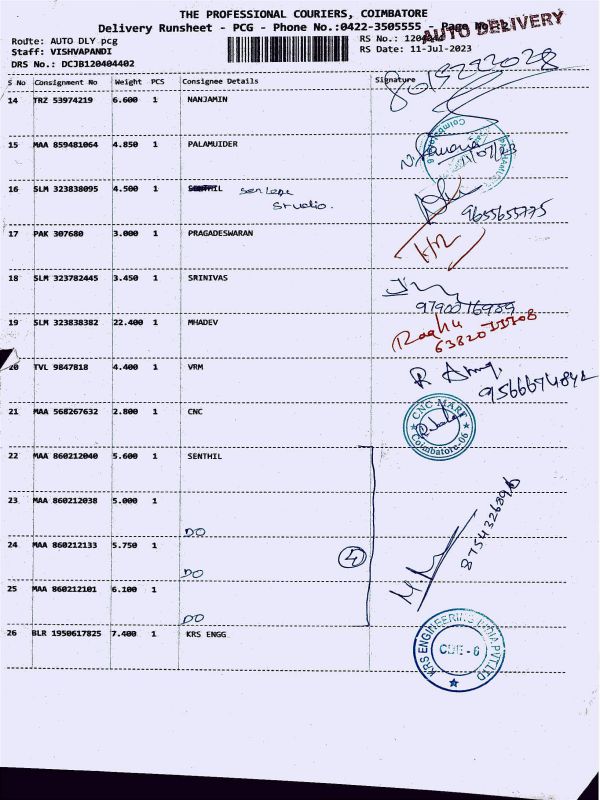 THE PROFESSIONAL COURIERS, COIMBATORE
Delivery Runsheet - PCG - Phone No.:0422-3505555 - Page No.
AUTO DELIVERY
Route: AUTO DLY pcg RS No.:
Staff: VISHVAPANDI RS Date: 11-Jul-2023
DRS No.: DCJB120404402
S No Consignment No Weight PCS Consignee Details Signature
8015222028
14 TRZ 53974219 6.600 1 NANJAMIN
15 MAA 859481064 4.850 1 PALAMUIDER
16 SLM 323838095 4.500 1 SENTHIL
Studio.
9655655775
17 PAK 307680 3.000 1 PRAGADESWARAN
18 SLM 323782445 3.450 1 SRINIVAS
9790016989
19 SLM 323838382 22.400 1 MHADEV
Raghu
20 TVL 9847818 4.400 1 VRM
21 MAA 568267632 2.800 1 CNC
CNC MARK
Coimbatore-06
22 MAA 860212040 5.600 1 SENTHIL
23 MAA 860212038 5.000 1
DO
24 MAA 860212133 5.750 1
DO
4
25 MAA 860212101 6.100 1
DO
26 BLR 1950617825 7.400 1 KRS ENGG
KRS ENGINEERING INDIA PVT LTD
CBE - 6